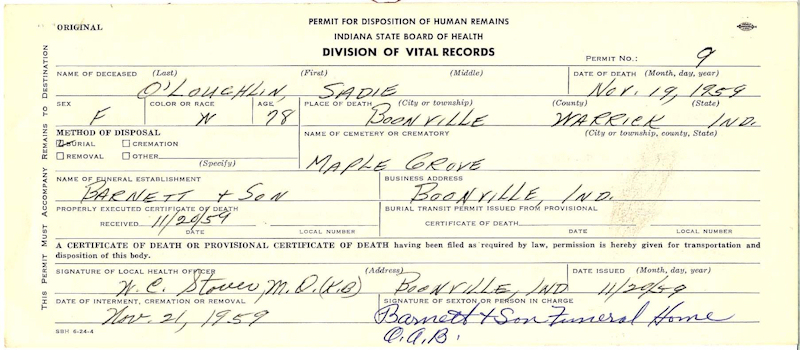 ORIGINAL
PERMIT FOR DISPOSITION OF HUMAN REMAINS
INDIANA STATE BOARD OF HEALTH
DIVISION OF VITAL RECORDS
PERMIT NO.: 9
THIS PERMIT MUST ACCOMPANY REMAINS TO DESTINATION
NAME OF DECEASED (Last) (First) (Middle) DATE OF DEATH (Month, day, year)
O'LOUGHLIN, SADIE NOV. 19, 1959
SEX COLOR OR RACE AGE PLACE OF DEATH (City or township) (County) (State)
F W 78 BOONVILLE WARRICK IND.
METHOD OF DISPOSAL NAME OF CEMETERY OR CREMATORY (City or township, county, State)
BURIAL CREMATION
REMOVAL OTHER
(Specify) MAPLE GROVE
NAME OF FUNERAL ESTABLISHMENT BUSINESS ADDRESS
BARNETT + SON BOONVILLE, IND.
PROPERLY EXECUTED CERTIFICATE OF DEATH BURIAL TRANSIT PERMIT ISSUED FROM PROVISIONAL
RECEIVED 11/20/59 CERTIFICATE OF DEATH
DATE LOCAL NUMBER DATE LOCAL NUMBER
A CERTIFICATE OF DEATH OR PROVISIONAL CERTIFICATE OF DEATH having been filed as required by law, permission is hereby given for transportation and
disposition of this body.
SIGNATURE OF LOCAL HEALTH OFFICER (Address) DATE ISSUED (Month, day, year)
W. C. Stover, M.D. BOONVILLE, IND 11/20/59
DATE OF INTERMENT, CREMATION OR REMOVAL SIGNATURE OF SEXTON OR PERSON IN CHARGE
Nov. 21, 1959 Barnett + Son Funeral Home
O.A.B.
SBH 6-24-4